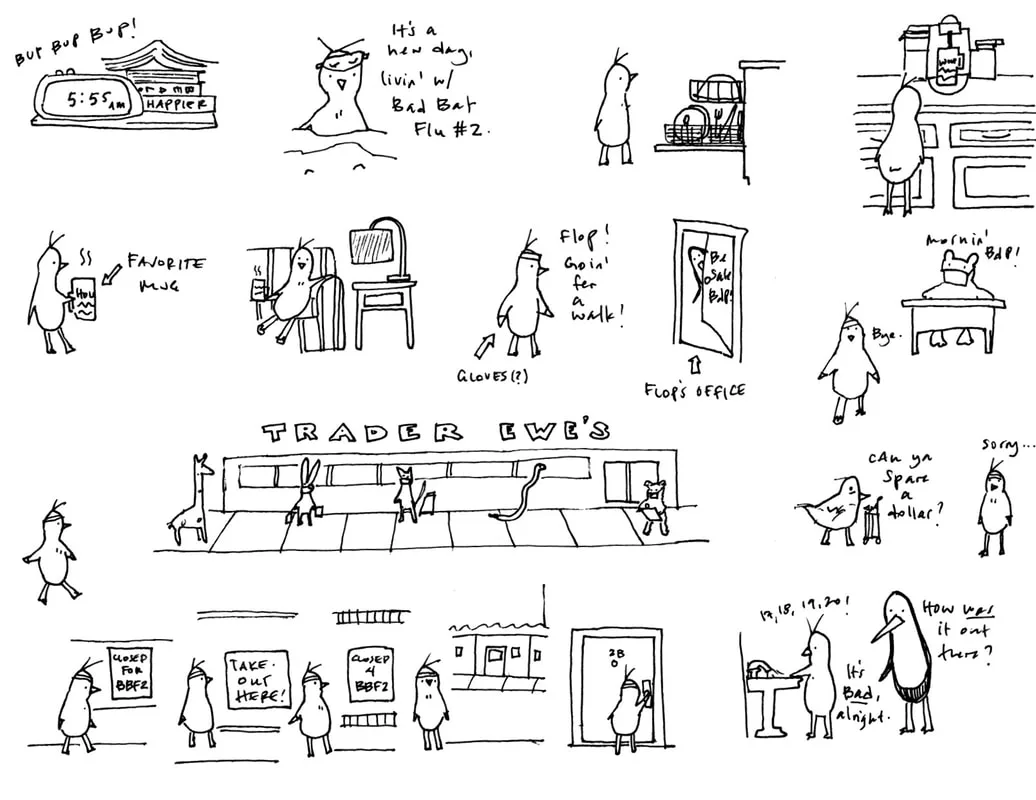 BUP BUP BUP!
5:55 AM
HAPPIER
It's a
new day,
livin' w/
Bad Bat
Flu #2.
FAVORITE
MUG
Flop!
Goin'
fer
a
walk!
GLOVES(?)
Be
Safe
BdP!
FLOP'S OFFICE
Mornin'
BdP!
Bye.
TRADER EWE'S
CAn ya
Spare
a
dollar?
Sorry...
CLOSED
FOR
BBF2
TAKE-
OUT
HERE!
CLOSED
4
BBF2
2B
17, 18, 19, 20!
It's
Bad,
alright.
How was
it out
there?